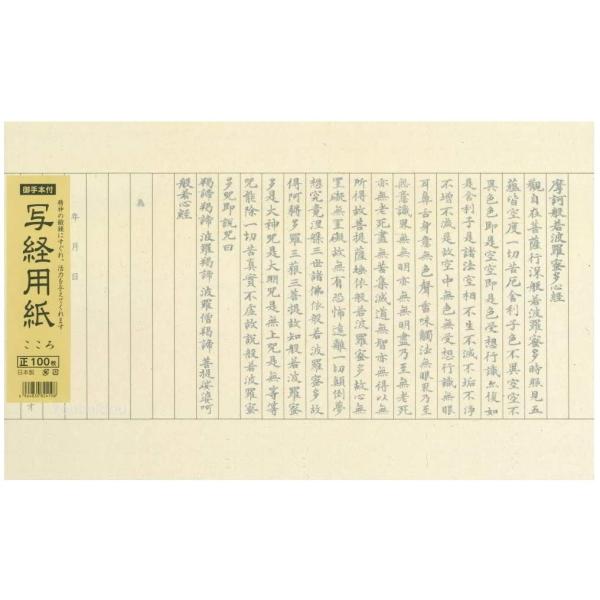 摩訶般若波羅蜜多心経
觀自在菩薩行深般若波羅蜜多時照見五
蘊皆空度一切苦厄舍利子色不異空空不
異色色即是空空即是色受想行識亦復如
是舍利子是諸法空相不生不滅不垢不淨
不增不減是故空中無色無受想行識無眼
耳鼻舌身意無色聲香味觸法無眼界乃至
無意識界無無明亦無無明盡乃至無老死
亦無老死盡無苦集滅道無智亦無得以無
所得故菩提薩埵依般若波羅蜜多故心無
罣礙無罣礙故無有恐怖遠離一切顛倒夢
想究竟涅槃三世諸佛依般若波羅蜜多故
得阿耨多羅三藐三菩提故知般若波羅蜜
多是大神咒是大明咒是無上咒是無等等
咒能除一切苦真實不虛故說般若波羅蜜
多咒即說咒曰
羯諦羯諦 波羅羯諦 波羅僧羯諦 菩提娑婆呵
般若心経
為
年 月 日
御手本付
精神の鍛錬にすぐれ、活力を与えてくれます
写経用紙
こころ
正100枚
日本製